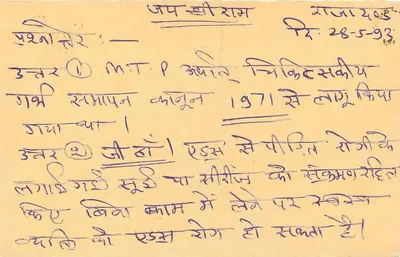 जय श्री राम
राजा
दि: 28-5-93
प्रश्नोत्तर : —
उत्तर ① M.T.P अर्थात् चिकित्सकीय
गर्भ समापन कानून 1971 से लागू किया
गया था ।
उत्तर ② जी हाँ । एड्स से पीड़ित रोगी के
लगाई गई सूई या सीरींज को संक्रमण रहित
किए बिना काम में लेने पर स्वस्थ
व्यक्ति को एड्स रोग हो सकता है।